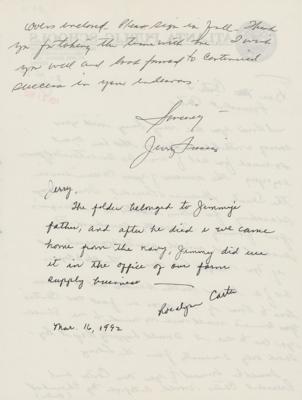 covers enclosed. Please sign in full. Thank
you for taking the time with me. I wish
you well and look forward to continued
success in your endeavors.
Sincerely
Jerry
Jerry,
The folder belonged to Jimmy's
father, and after he died & we came
home from the navy, Jimmy did use
it in the office of our farm
supply business —
Rosalynn Carter
Mar. 16, 1992
ATLANTA PUBLIC SCHOOLS